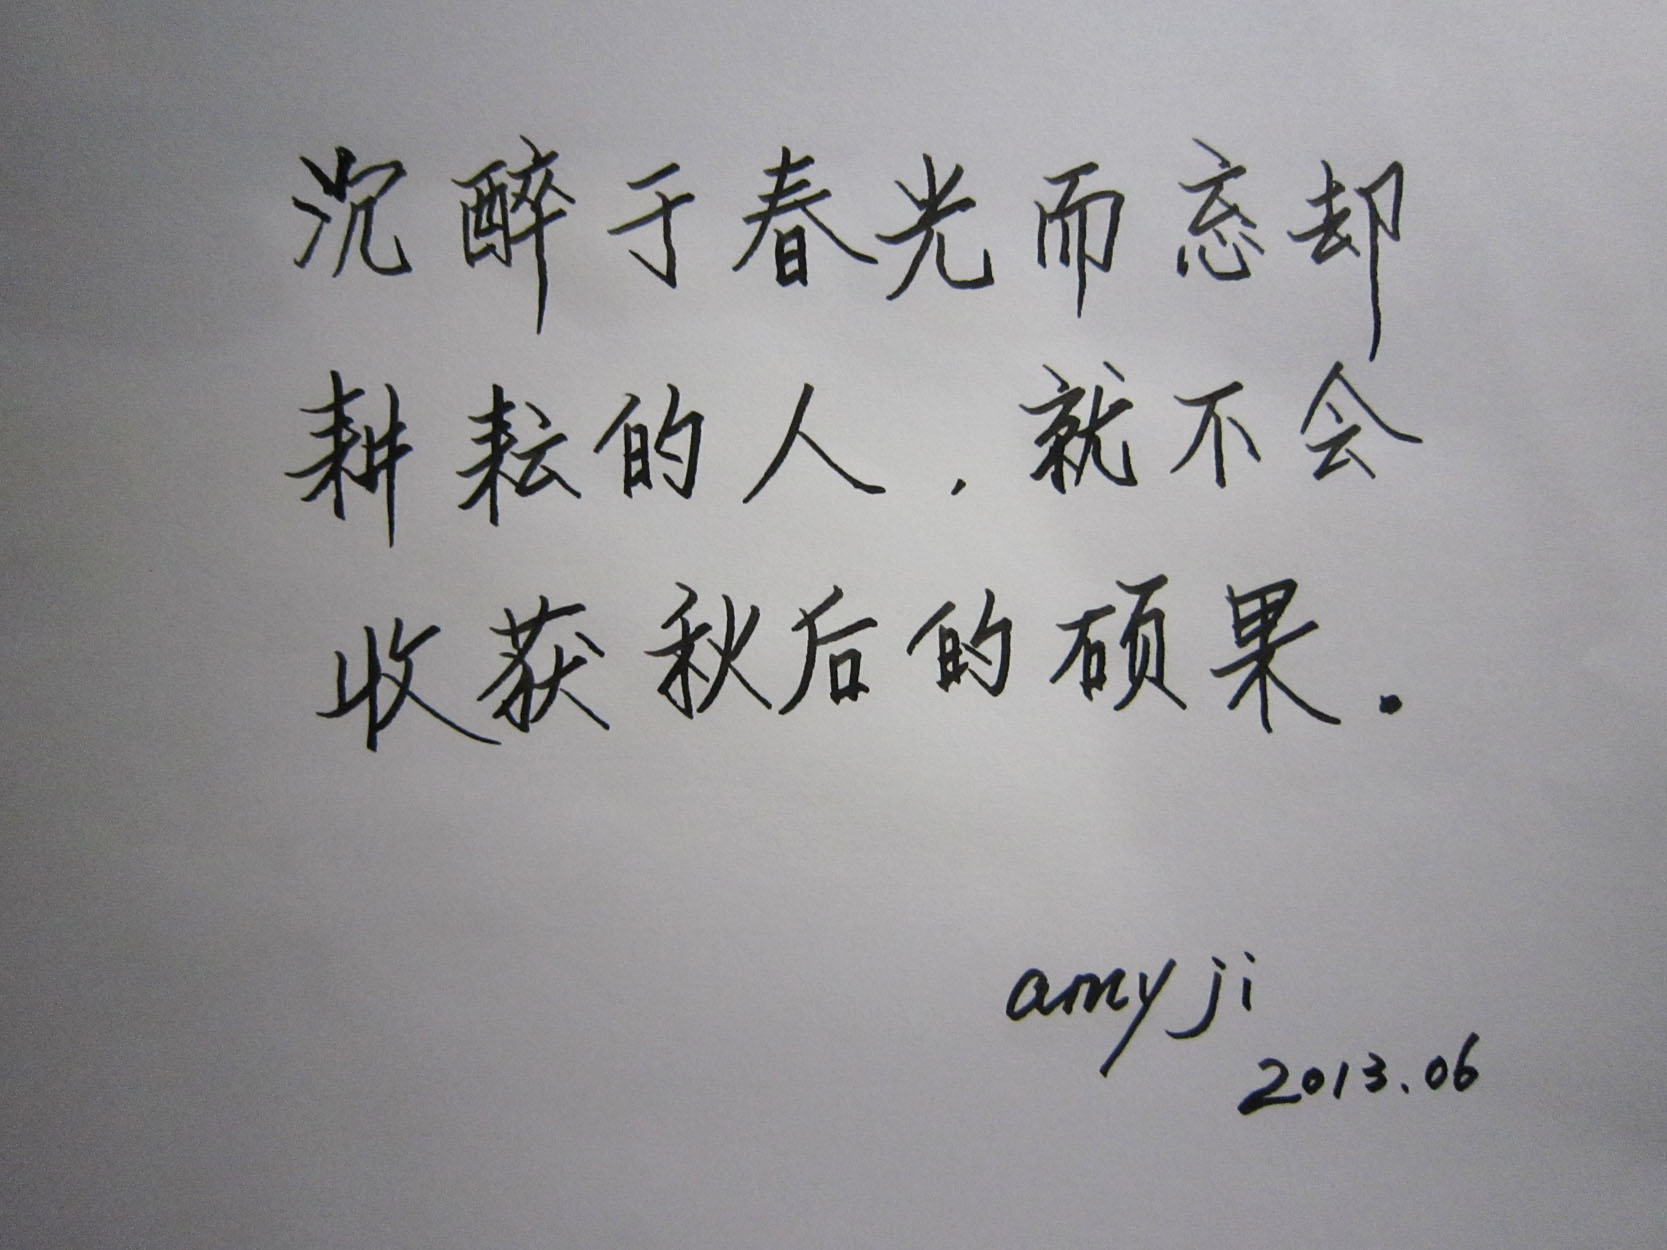 沉醉于春光而忘却
耕耘的人，就不会
收获秋后的硕果.
amy ji
2013.06